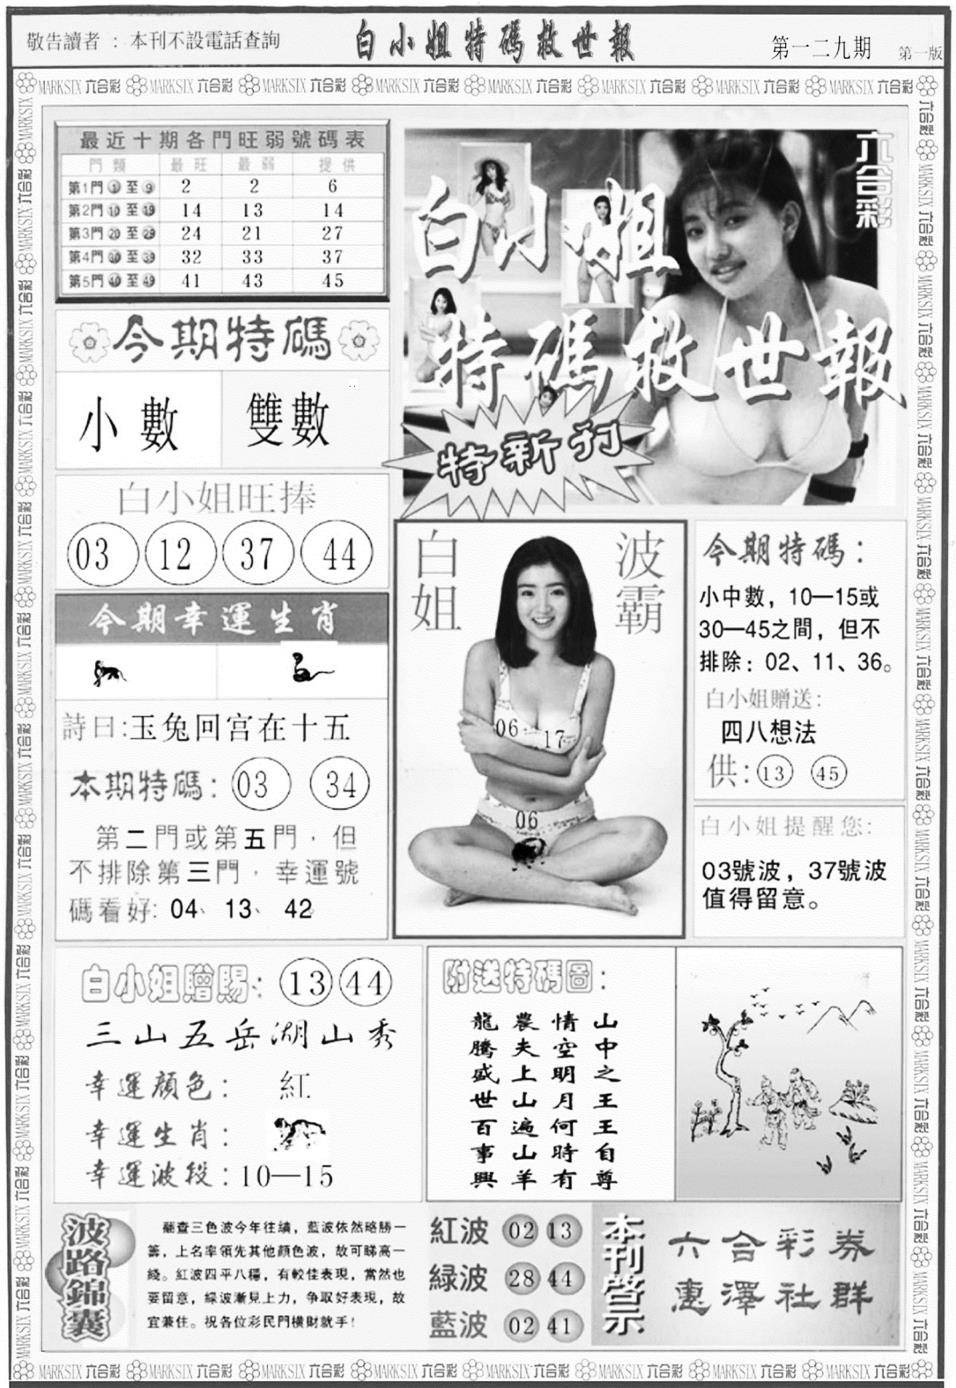 敬告讀者：本刊不設電話查詢
白小姐特碼救世報
第一二九期
第一版
MARKSIX 六合彩
最近十期各門旺弱號碼表
門類 最旺 最弱 提供
第1門①至⑨ 2 2 6
第2門⑩至⑲ 14 13 14
第3門⑳至㉙ 24 21 27
第4門㉚至㊴ 32 33 37
第5門㊵至㊾ 41 43 45
六合彩
白小姐
特碼救世報
特新刊
今期特碼
小數 雙數
白小姐旺捧
03 12 37 44
今期幸運生肖
詩曰:玉兔回宫在十五
本期特碼：03 34
第二門或第五門，但
不排除第三門，幸運號
碼看好：04、13、42
白姐
波霸
06 17
06
今期特碼：
小中數，10—15或
30—45之間，但不
排除：02、11、36。
白小姐贈送:
四八想法
供：13 45
白小姐提醒您:
03號波，37號波
值得留意。
白小姐贈賜：13 44
三山五岳湖山秀
幸運顏色：紅
幸運生肖：
幸運波段：10—15
附送特碼圖：
山中之王王自尊
情空明月何時有
農夫上山遍山羊
龍騰盛世百事興
波路錦囊
翻查三色波今年往績，藍波依然略勝一
籌，上名率領先其他顏色波，故可睇高一
綫。紅波四平八穩，有較佳表現，當然也
要留意，綠波漸見上力，争取好表現，故
宜兼住。祝各位彩民門橫財就手！
紅波 02 13
緑波 28 44
藍波 02 41
本刊啓示
六合彩券
惠澤社群